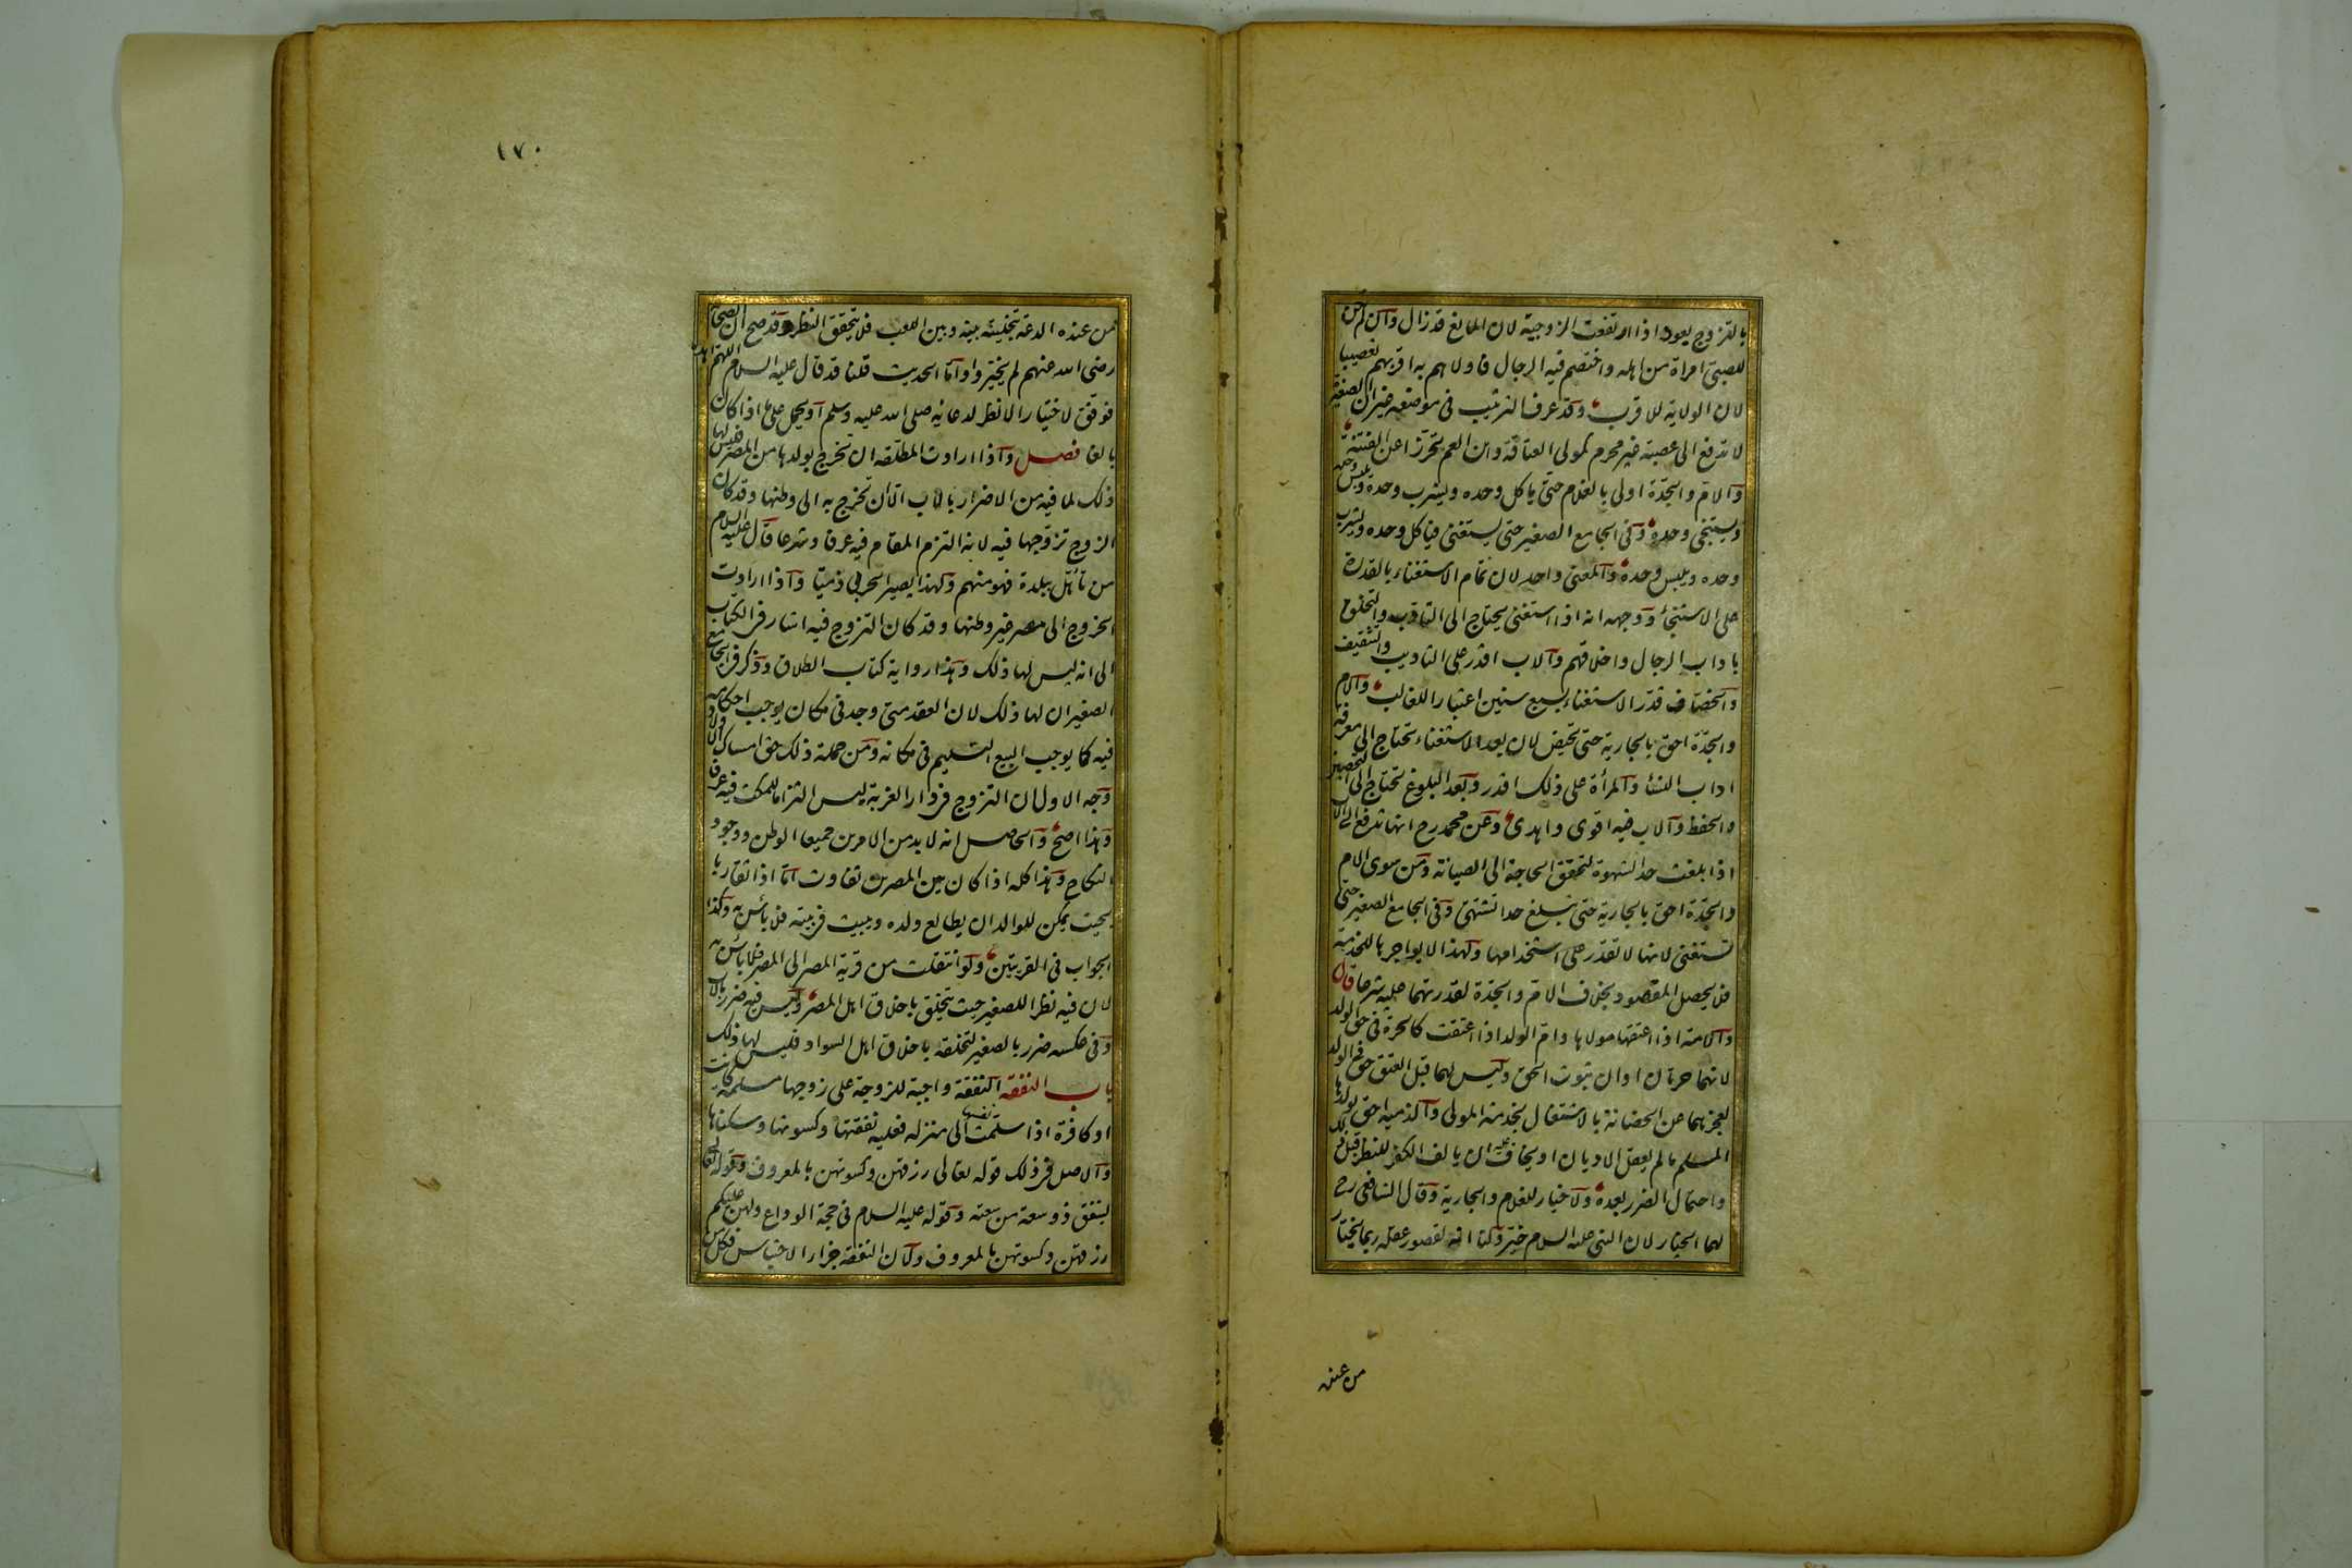 بالتزوج يعود اذا ارتفعت الزوجية لان المانع قد زال وان لم يكن
للصبي امراة من اهله واختصم فيه الرجال فاولاهم به اقربهم تعصيبا
لان الولاية للاقرب وقد عرف الترتيب في موضعه غير ان الصغيرة
لا تدفع الى عصبة غير محرم كمولى العتاقة وابن العم تحرزا عن الفتنة
والام والجدة اولى بالغلام حتى ياكل وحده ويشرب وحده ويلبس وحده
ويستنجي وحده وفي الجامع الصغير حتى يستغني فياكل وحده ويشرب
وحده ويلبس وحده والمعنى واحد لان تمام الاستغناء بالقدرة
على الاستنجاء ووجهه انه اذا استغنى يحتاج الى التادب والتخلق
باداب الرجال واخلاقهم والاب اقدر على التاديب والتثقيف
والخصاف قدر الاستغناء بسبع سنين اعتبارا للغالب والام
والجدة احق بالجارية حتى تحيض لان بعد الاستغناء تحتاج الى معرفة
اداب النساء والمرأة على ذلك اقدر وبعد البلوغ تحتاج الى التحصين
والحفظ والاب فيه اقوى واهدى وعن محمد رح انها تدفع الى الاب
اذا بلغت حد الشهوة لتحقق الحاجة الى الصيانة ومن سوى الام
والجدة احق بالجارية حتى تبلغ حدا تشتهى وفي الجامع الصغير حتى
تستغني لانها لا تقدر على استخدامها ولهذا لا يواجرها للخدمة
فلا يحصل المقصود بخلاف الام والجدة لقدرتهما عليه شرعا قال
والامة اذا اعتقها مولاها وام الولد اذا اعتقت كالحرة في حق الولد
لانهما حرتان اوان ثبوت الحق وليس لهما قبل العتق حق في الولد
لعجزهما عن الحضانة بالاشتغال بخدمة المولى والذمية احق بولدها
المسلم ما لم يعقل الاديان او يخاف عليه ان يالف الكفر للنظر قبل ذلك
واحتمال الضرر بعده ولا خيار للغلام والجارية وقال الشافعي رح
لهما الخيار لان النبي عليه السلام خير ولنا انه لقصور عقله ربما يختار
من عنده
١٧٠
من عنده الدعة بتخليته بينه وبين اللعب فلا يتحقق النظر وقد صح ان الصحابة
رضي الله عنهم لم يخيروا واما الحديث قلنا قد قال عليه السلام اللهم اهده
فوفق لاختيار الانظر لدعائه صلى الله عليه وسلم او يحمل على ما اذا كان
بالغا فصل واذا ارادت المطلقة ان تخرج بولدها من المصر فليس لها
ذلك لما فيه من الاضرار بالاب الا ان تخرج به الى وطنها وقد كان
الزوج تزوجها فيه لانه التزم المقام فيه عرفا وشرعا قال عليه السلام
من تأهل ببلدة فهو منهم ولهذا يصير الحربي ذميا واذا ارادت
الخروج الى مصر غير وطنها وقد كان التزوج فيه اشار في الكتاب
الى انه ليس لها ذلك وهذا رواية كتاب الطلاق وذكر في الجامع
الصغير ان لها ذلك لان العقد متى وجد في مكان يوجب احكامه
فيه كما يوجب البيع التسليم في مكانه ومن جملة ذلك حق امساك الاولاد
وجه الاول ان التزوج في دار الغربة ليس التزاما للمكث فيه عرفا
وهذا اصح والحاصل انه لا بد من الامرين جميعا الوطن ووجود
النكاح وهذا كله اذا كان بين المصرين تفاوت اما اذا تقاربا
بحيث يمكن للوالد ان يطالع ولده ويبيت في بيته فلا بأس به وكذا
الجواب في القريتين ولو انتقلت من قرية المصر الى المصر فلا بأس به
لان فيه نظرا للصغير حيث يتخلق باخلاق اهل المصر وليس فيه ضرر بالاب
وفي عكسه ضرر بالصغير لتخلقه باخلاق اهل السواد فليس لها ذلك
باب النفقة النفقة واجبة للزوجة على زوجها مسلمة كانت
او كافرة اذا سلمت نفسها الى منزله فعليه نفقتها وكسوتها وسكناها
والاصل في ذلك قوله تعالى رزقهن وكسوتهن بالمعروف وقوله تعالى
لينفق ذو سعة من سعته وقوله عليه السلام في حجة الوداع ولهن عليكم
رزقهن وكسوتهن بالمعروف ولان النفقة جزاء الاحتباس فكل من